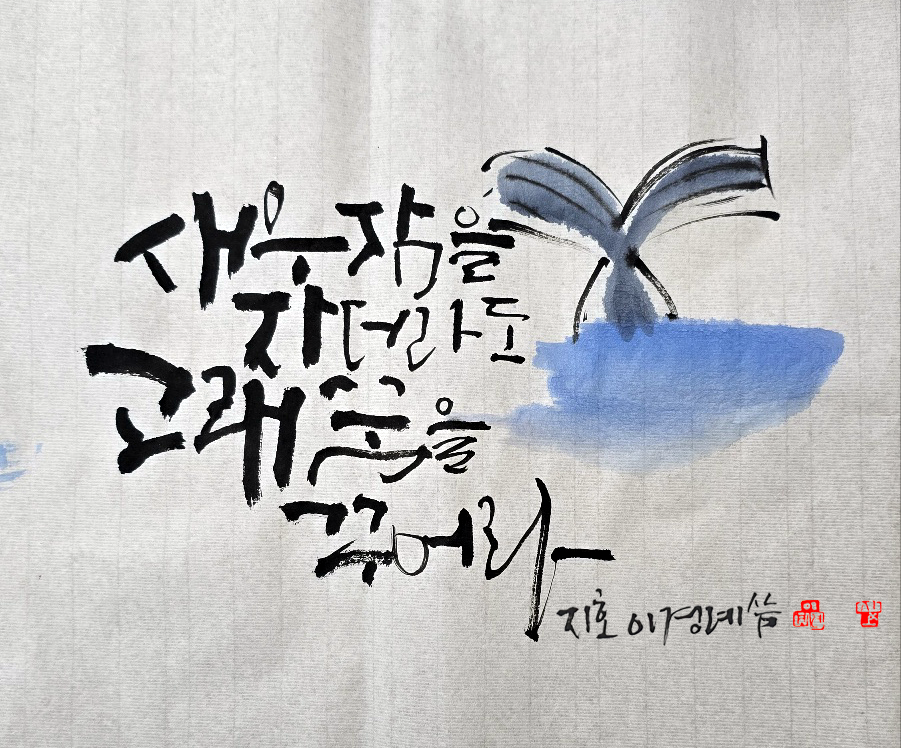 새우잠을
자더라도
고래꿈을
꾸어라
지호 이경례 씀